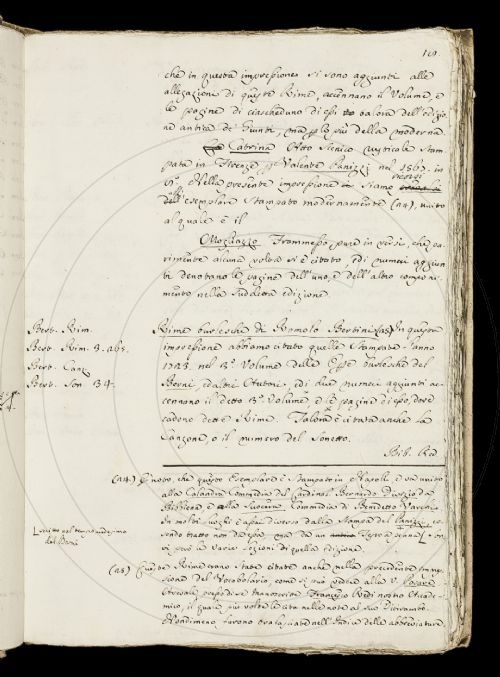 119.
che in questa impressione si sono aggiunti alle
allegazioni di queste Rime, accennano il Volume, e
le pagine di ciascheduno di essi o talora dell'edizio
ne antica de' Giunti, ma p lo più della moderna.
La Catrina Atto Scenico rusticale Stam
pata in Firenze pr Valente Panizzj nel 1567. in
Nella presente impressione siamo
dell'esemplare Stampato modernamente (14), unito
al quale è il
Mogliazzo Frammesso pure in versi, che pa
rimente alcuna volta si è citato, ed i numeri aggiun
ti denotano le pagine dell'uno, e dell'altro componi
mento nella suddetta edizione.
Bert. Rim.
Bert. Rim. 3. 265.
Bert. Canz.
Bert. Son. 34.
Rime burlesche di Romolo Bertini (15) In questa
impressione abbiamo citato quelle Stampate l'anno
1723. nel 3.° Volume delle Opere burlesche del
Berni, ed altri Autori, ed i due numeri aggiunti ac
cennano il detto 3.° Volume e le pagine di esso, dove
cadono dette Rime. Talora è citata anche la
Canzone, o il numero del Sonetto.
Bib. Red.
(14) È noto che questo Esemplare è Stampato in Napoli, e va unito
alla Calandra Commedia del Cardinal Bernardo Divizio da
Bibbiena e alla Suocera Commedia di Benedetto Varchi.
In molti luoghi è assai diverso dalla Stampa del Panizzi, es
sendo tratto non da essa, ma da un Testo a penna
vi però le varie Lezioni di quella edizione.
scritto nel tempo medesimo
del Berni
(15) Queste Rime erano state citate anche nella precedente impres
sione del Vocabolario, come si può vedere alla V.
Francesco Redi nostro Accade
mico, il quale più volte le cita nelle note al suo Ditirambo.
furono tralasciate nell'Indice delle abbreviature.